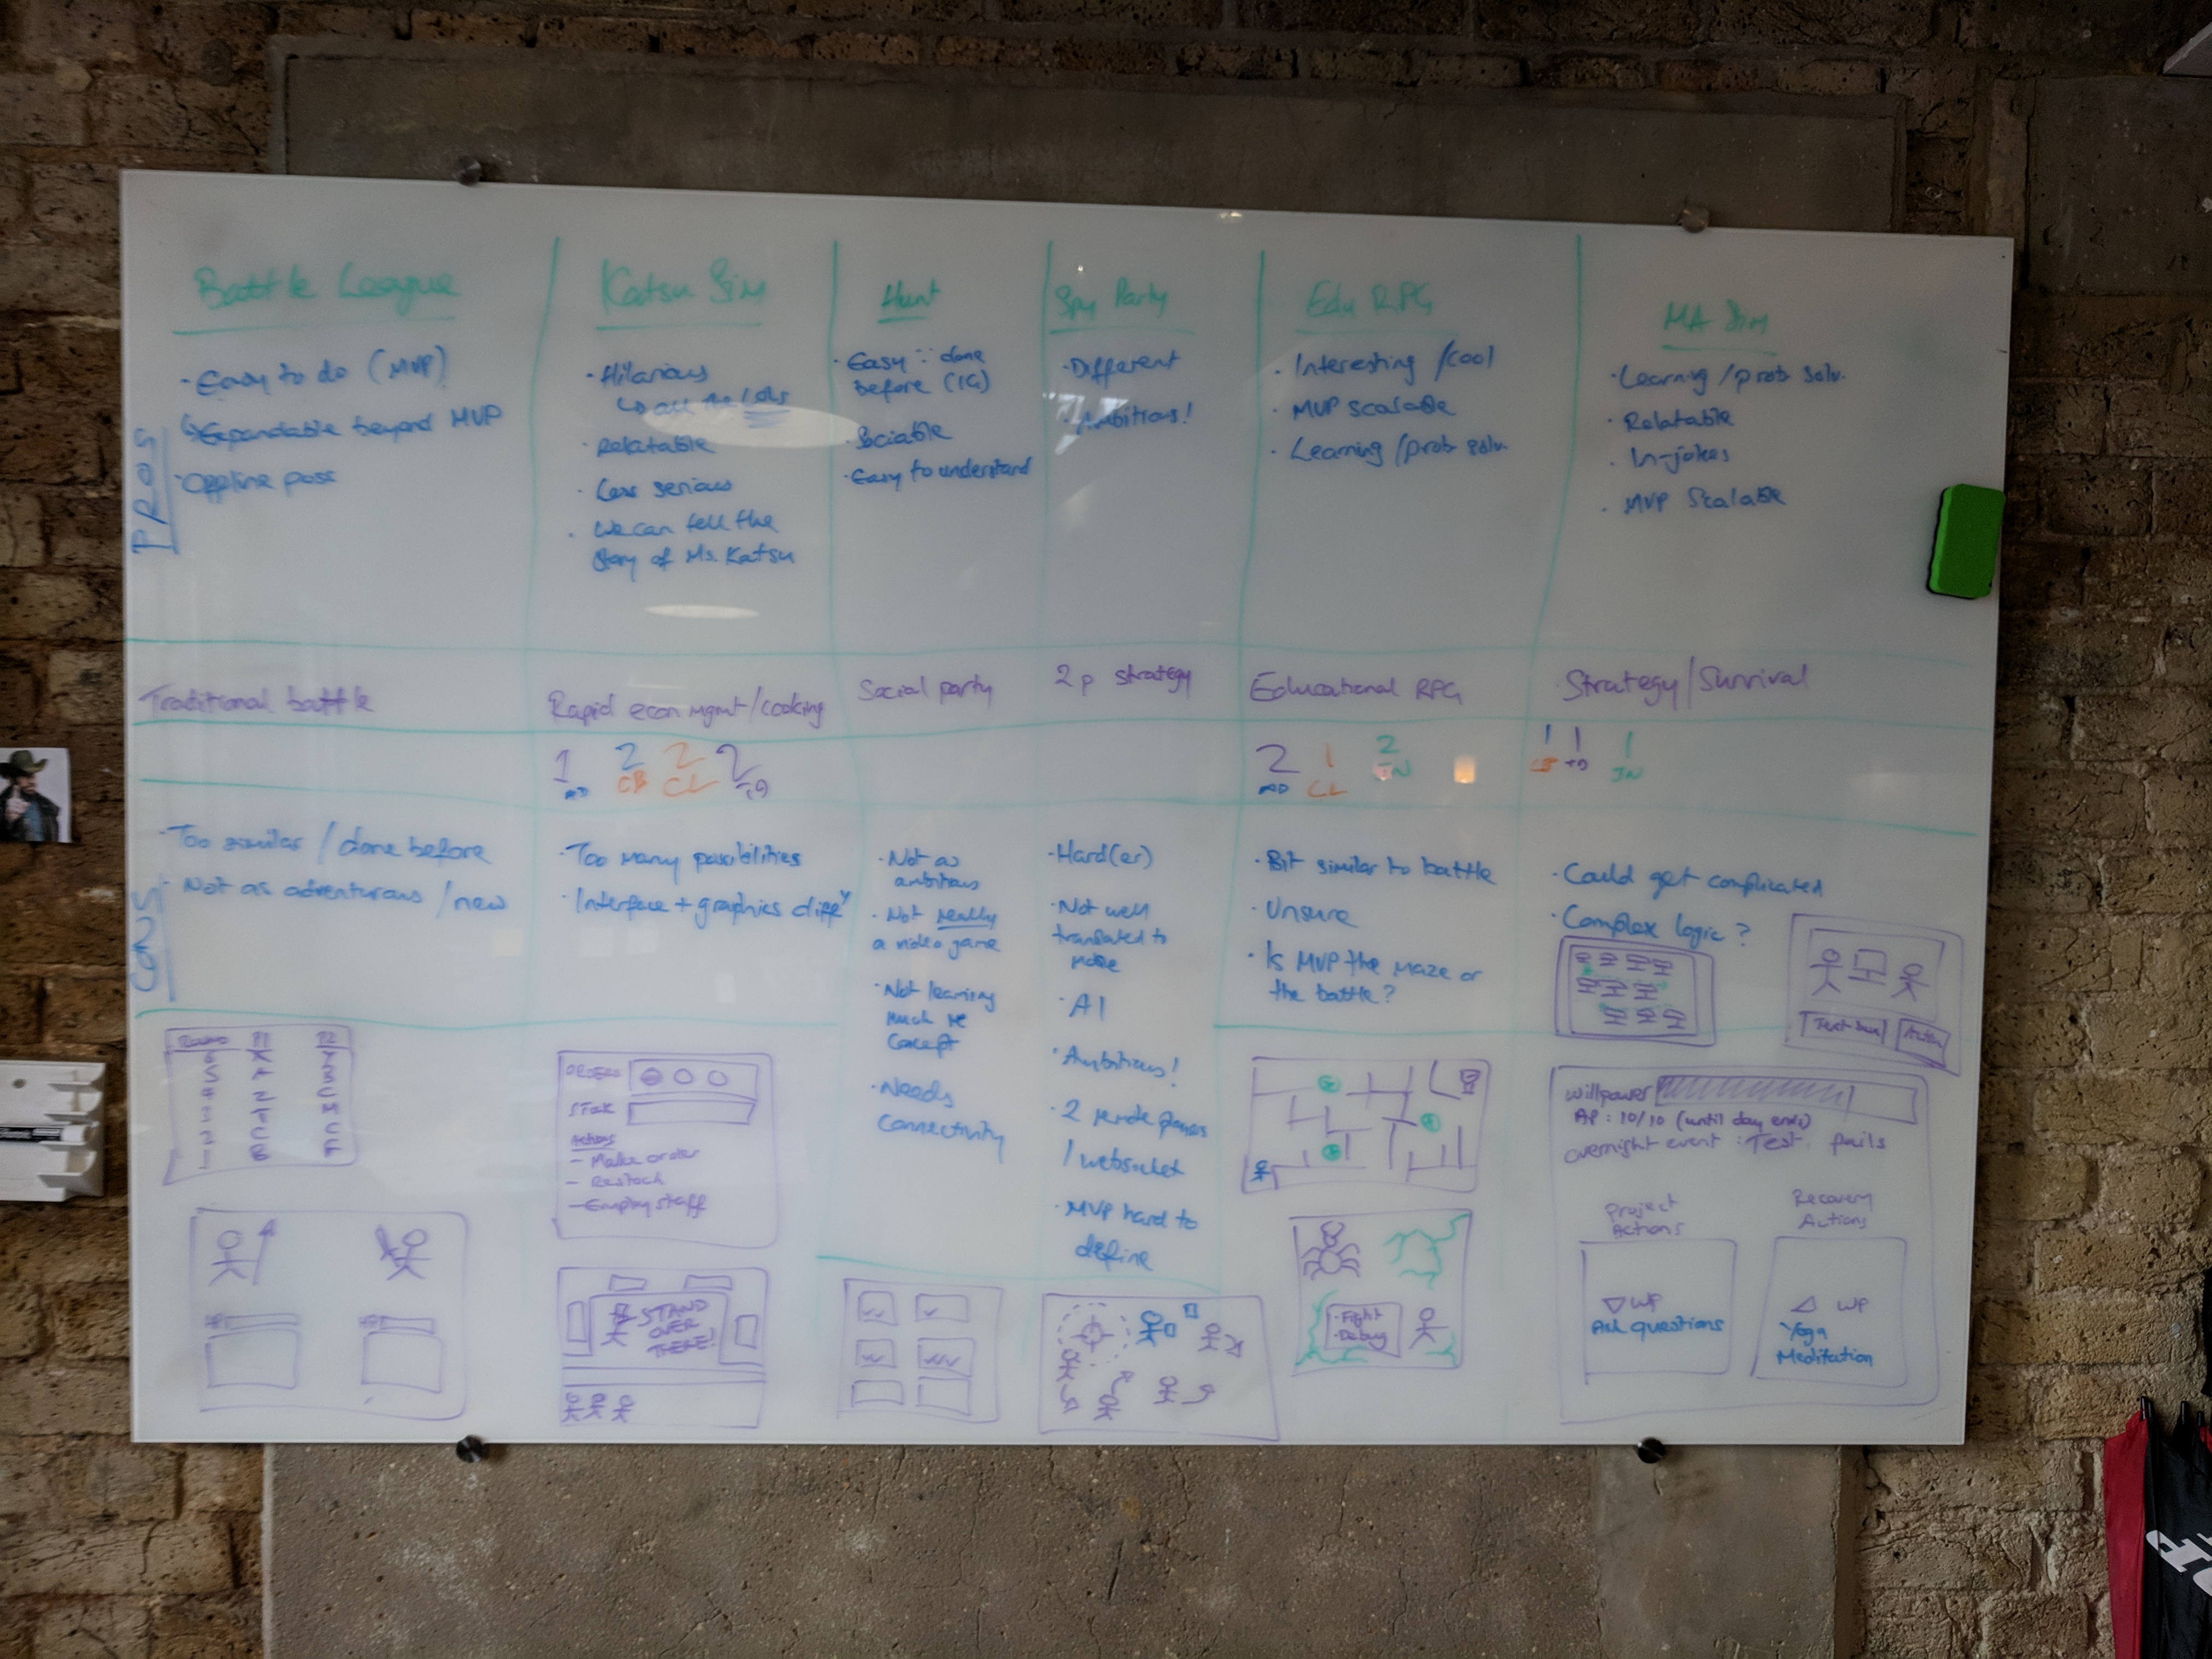 Battle League
Katsu Sim
Hunt
Spy Party
Edu RPG
MA Sim
PROS
· Easy to do (MVP)
Expandable beyond MVP
· Offline poss
· Hilarious
↳ all the lols
· Relatable
· Less serious
· We can tell the
Story of Ms. Katsu
· Easy ∵ done
before (IG)
· Sociable
· Easy to understand
· Different
· Ambitious!
· Interesting / cool
· MVP scalable
· Learning / prob solv.
· Learning / prob solv.
· Relatable
· In-jokes
· MVP Scalable
Traditional battle
Rapid econ mgmt/cooking
Social party
2p strategy
Educational RPG
Strategy/Survival
1 2 2 2
AD CB CL
2 1 2
AD CL JN
1 1 1
JN
CONS
· Too similar / done before
· Not as adventurous / new
· Too many possibilities
· Interface + graphics diffy
· Not as
ambitious
· Not really
a video game
· Not learning
much re
concept
· Needs
connectivity
· Hard(er)
· Not well
translated to
· AI
· Ambitious!
· 2 remote players
/ websocket
· MVP hard to
define
· Bit similar to battle
· Unsure
· Is MVP the maze or
the battle?
· Could get complicated
· Complex logic?
ORDERS
STOCK
Actions
- Make order
- Restock
- Employ staff
STAND
OVER
THERE!
· Fight
· Debug
Text box
Action
Willpower
AP: 10/10 (until day ends)
overnight event: Test fails
Project
Actions
Recovery
Actions
▽ WP
Ask questions
△ WP
Yoga
Meditation